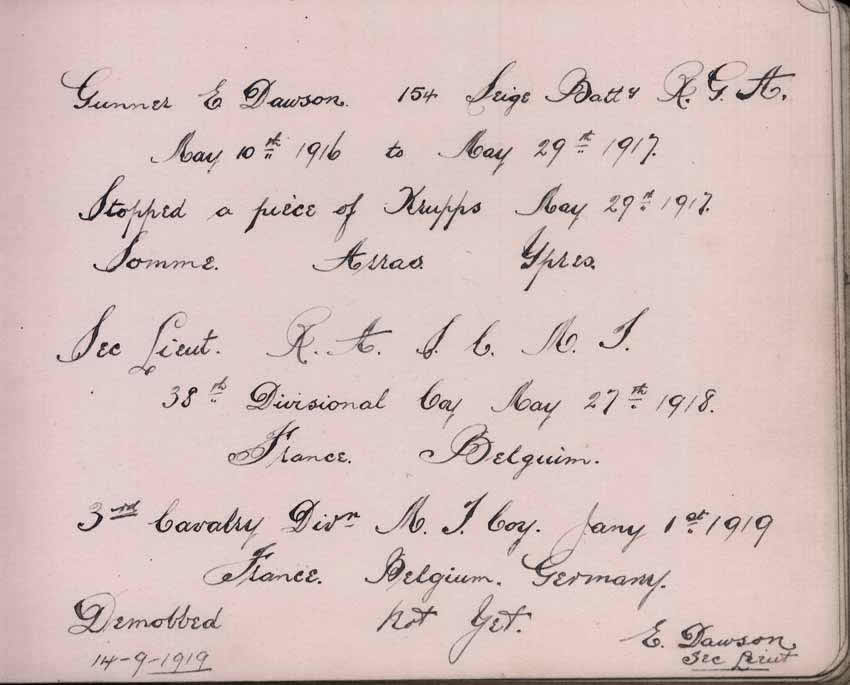 Gunner E Dawson. 154 Seige Batty R. G. A.
May 10th 1916 to May 29th 1917.
Stopped a piece of Krupps May 29th 1917.
Somme. Arras. Ypres.
Sec Lieut. R. A. S. C. M. T.
38th Divisional Coy May 27th 1918.
France. Belguim.
3rd Cavalry Divn M. T. Coy. Jany 1st 1919
France. Belgium. Germany.
Demobbed Not Yet.
14-9-1919
E. Dawson
Sec Lieut